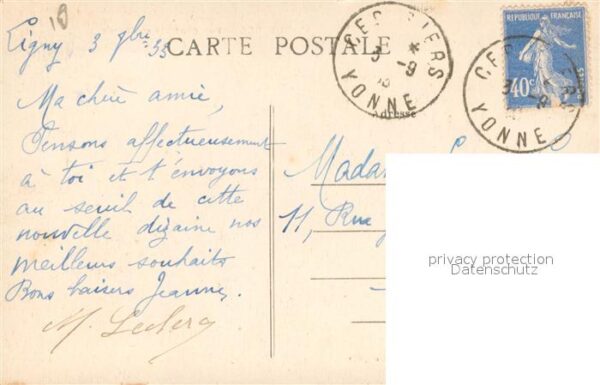 Ligny 3 9bre 33
CARTE POSTALE
CERISIERS
3 -9
YONNE
RÉPUBLIQUE FRANÇAISE
40c
CERISIERS
3 -9
YONNE
Adresse
Ma chère amie,
Pensons affectueusement
à toi et t'envoyons
au seuil de cette
nouvelle dizaine nos
meilleurs souhaits
Bons baisers Jeanne.
M. Leclerq
11, Rue
privacy protection
Datenschutz